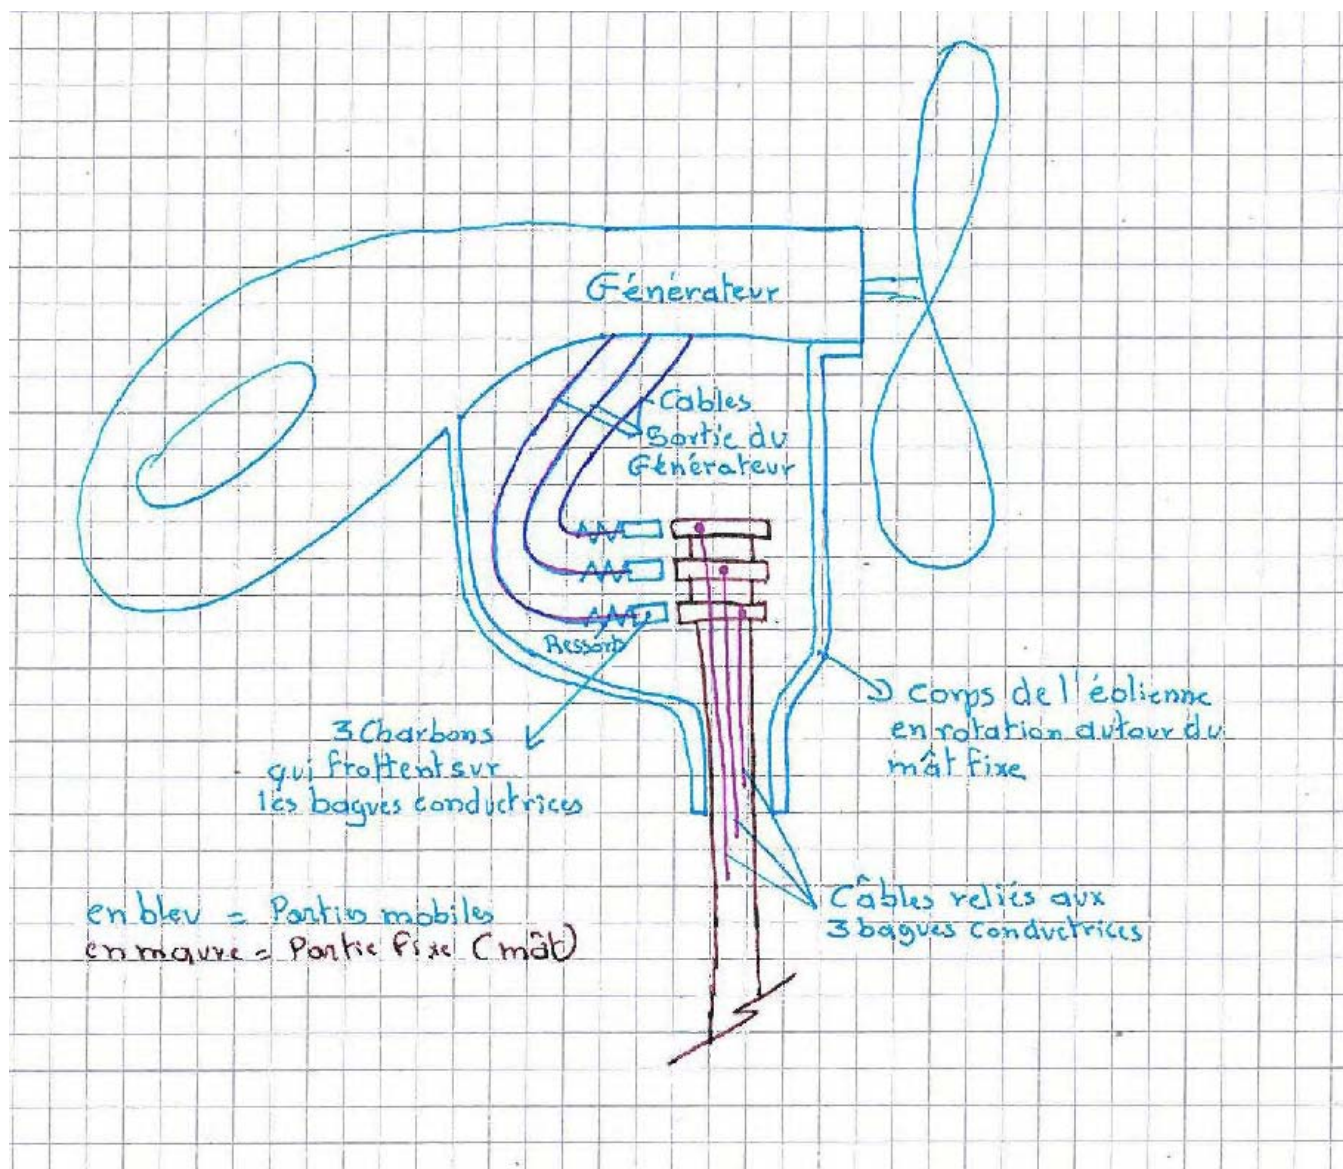 Générateur
Cables
Sortie du
Générateur
Ressorts
3 Charbons
qui frottent sur
les bagues conductrices
Corps de l'éolienne
en rotation autour du
mât fixe
Câbles reliés aux
3 bagues conductrices
en bleu = Parties mobiles
en mauve = Partie fixe (mât)